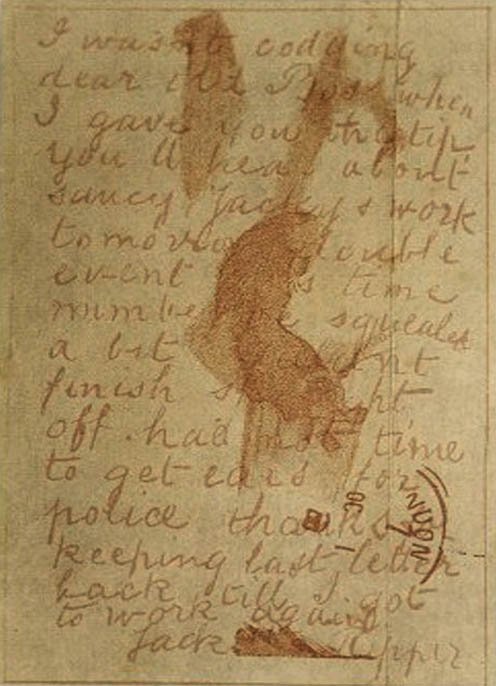 I wasn't codding
dear old Boss when
I gave you the tip.
you'll hear about
saucy Jackys work
tomorrow double
event this time
number one squealed
a bit couldnt
finish
off. had not time
to get ears for
police thanks for
keeping last letter
back till I got
to work again.
Jack Ripper
OC 1